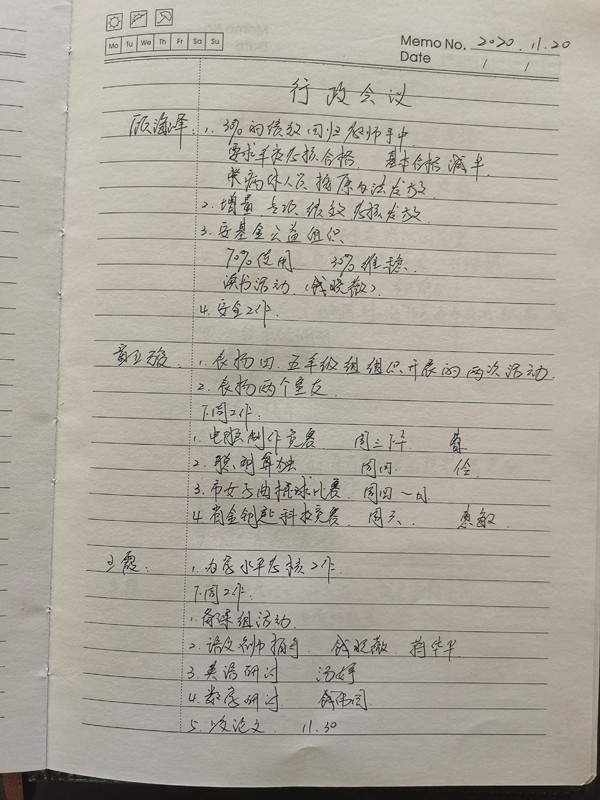 Mo Tu We Th Fr Sa Su
Memo No. 2020.11.20
Date / /
行政会议
顾海泽: 1. 30%的绩效回归教师手中
要求年度考核合格 基本合格减半
长病休人员按原办法发放
2. 增量专项绩效考核发放
3. 安基金公益组织
70%使用 30%维稳
读书活动 (钱晓敏)
4. 安全工作
1. 表扬四、五年级组组织开展的两次活动
2. 表扬两个室友
下周工作:
1. 电脑制作竞赛 周三下午
2. 聪明算独 周四
3. 市女子曲棍球比赛 周四一日
4. 省金钥匙科技竞赛 周六 惠敏
王霞: 1. 办学水平考核工作
下周工作:
1. 备课组活动
2. 语文名师指导 钱晓敏 荷华平
3. 英语研讨 汤婷
4. 数学研讨
5. 论文 11.30